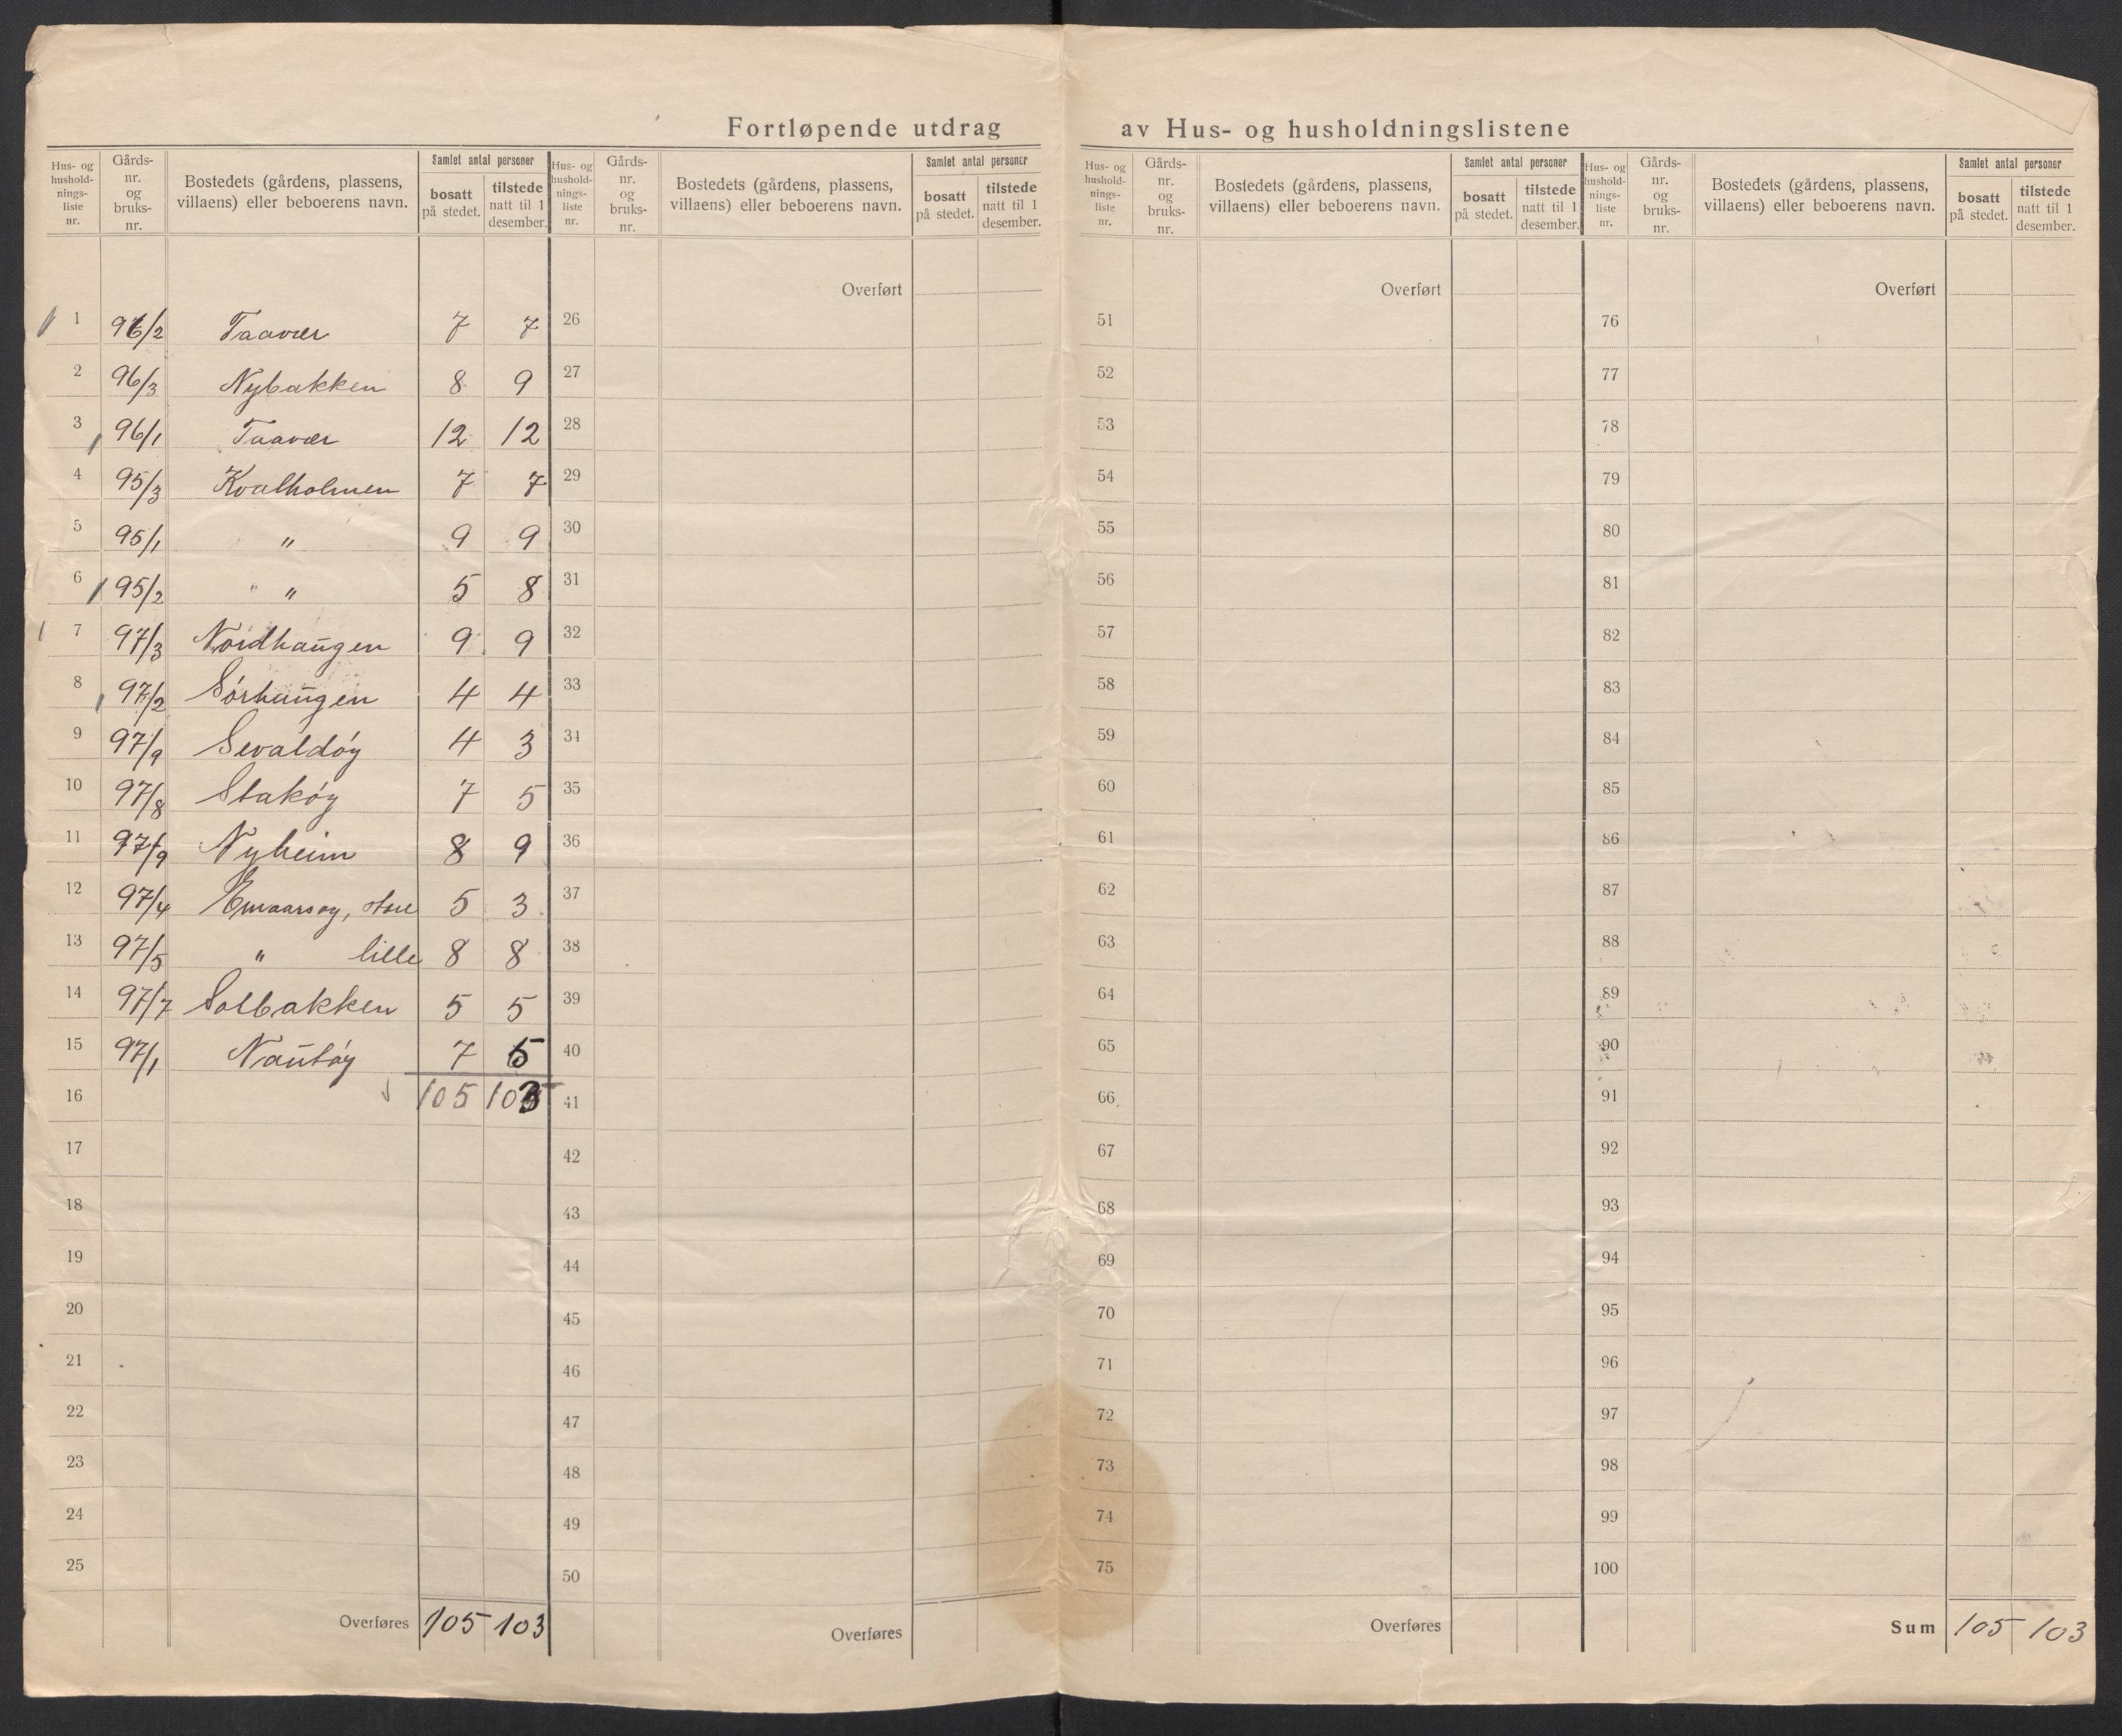 Fortløpende utdrag av Hus- og husholdningslistene
Hus- og hushold- nings- liste nr. | Gårds- nr. og bruks- nr. | Bostedets (gårdens, plassens, villaens) eller beboerens navn. | Samlet antal personer | bosatt på stedet. | tilstede natt til 1 desember.
Hus- og hushold- nings- liste nr. | Gårds- nr. og bruks- nr. | Bostedets (gårdens, plassens, villaens) eller beboerens navn. | Samlet antal personer | bosatt på stedet. | tilstede natt til 1 desember.
Hus- og hushold- nings- liste nr. | Gårds- nr. og bruks- nr. | Bostedets (gårdens, plassens, villaens) eller beboerens navn. | Samlet antal personer | bosatt på stedet. | tilstede natt til 1 desember.
Hus- og hushold- nings- liste nr. | Gårds- nr. og bruks- nr. | Bostedets (gårdens, plassens, villaens) eller beboerens navn. | Samlet antal personer | bosatt på stedet. | tilstede natt til 1 desember.
1 96/2 Taavær 7 7
2 96/3 Nybakken 8 9
3 96/1 Taavær 12 12
4 95/3 Kvalholmen 7 7
5 95/1 " 9 9
6 95/2 " " 5 8
7 97/3 Nordhaugen 9 9
8 97/2 Sørhaugen 4 4
9 97/9 Sevaldøy 4 3
10 97/8 Stakøy 7 5
11 97/9 Nyheim 8 9
12 97/4 store 5 3
13 97/5 " lille 8 8
14 97/7 Solbakken 5 5
15 97/1 Nautøy 7 5
16 105 103
17
18
19
20
21
22
23
24
25
Overføres 105 103
Overført
26
27
28
29
30
31
32
33
34
35
36
37
38
39
40
41
42
43
44
45
46
47
48
49
50
Overføres
Overført
51
52
53
54
55
56
57
58
59
60
61
62
63
64
65
66
67
68
69
70
71
72
73
74
75
Overføres
Overført
76
77
78
79
80
81
82
83
84
85
86
87
88
89
90
91
92
93
94
95
96
97
98
99
100
Sum 105 103